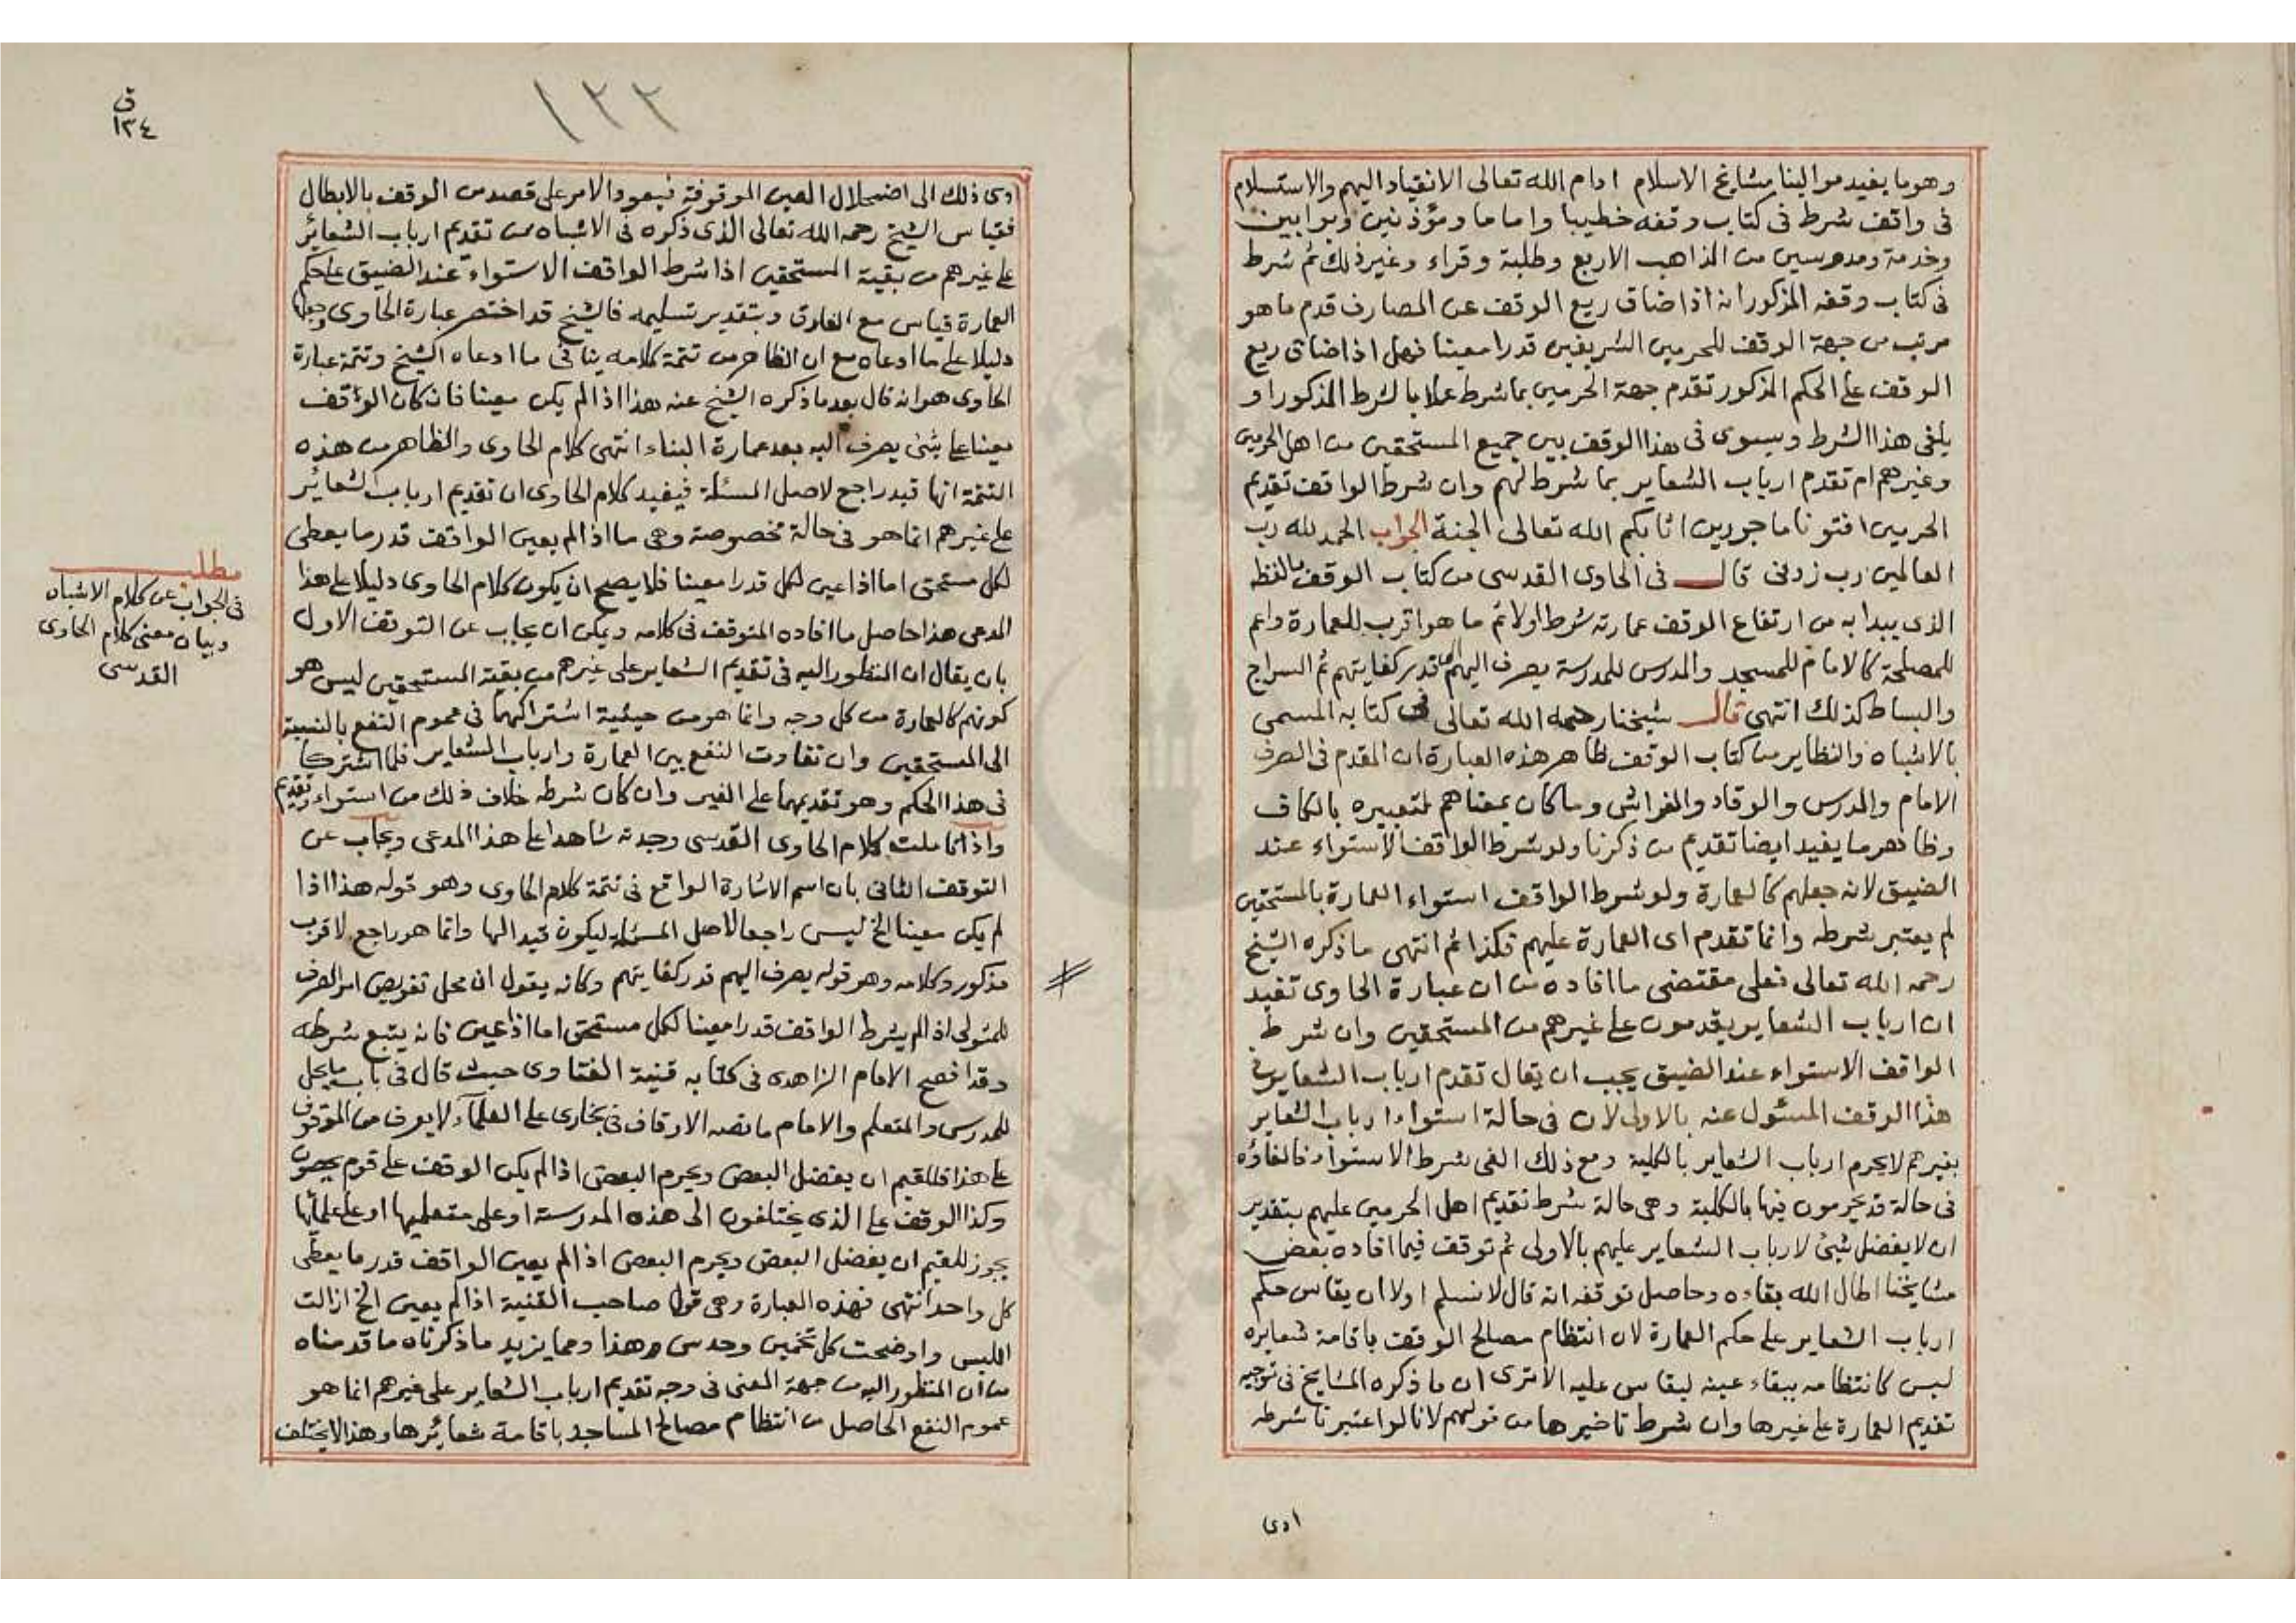 وهو ما يفيد موالينا مشايخ الاسلام ادام الله تعالى الانقياد اليهم والاستسلام
في واقف شرط في كتاب وقفه خطيبا واماما ومؤذنين وبوابين
وخدمة ومدرسين من المذاهب الاربع وطلبة وقراء وغير ذلك ثم شرط
في كتاب وقفه المذكور انه اذا ضاق ريع الوقف عن المصارف قدم ما هو
مرتب من جهة الوقف للحرمين الشريفين قدرا معينا فهل اذا ضاق ريع
الوقف على الحكم المذكور تقدم جهة الحرمين بما شرط عملا بالشرط المذكور او
يلغى هذا الشرط ويسوى في هذا الوقف بين جميع المستحقين من اهل الحرمين
وغيرهم ام تقدم ارباب الشعاير بما شرط لهم وان شرط الواقف تقديم
الحرمين افتونا ماجورين اثابكم الله تعالى الجنة الجواب الحمد لله رب
العالمين رب زدني قال في الحاوي القدسي من كتاب الوقف ما لفظه
الذي يبدا به من ارتفاع الوقف عمارته شرط اولا ثم ما هو اقرب للعمارة واعم
للمصلحة كالامام للمسجد والمدرس للمدرسة يصرف اليهم قدر كفايتهم ثم السراج
والبساط كذلك انتهى قال شيخنا رحمه الله تعالى في كتابه المسمى
بالاشباه والنظاير من كتاب الوقف ظاهر هذه العبارة ان المقدم في الصرف
الامام والمدرس والوقاد والفراش وما كان بمعناهم لتعبيره بالكاف
وظاهر ما يفيد ايضا تقديم من ذكرنا ولو شرط الواقف الاستواء عند
الضيق لانه جعلهم كالعمارة ولو شرط الواقف استواء العمارة بالمستحقين
لم يعتبر شرطه وانما تقدم اى العمارة عليهم فكذا هم انتهى ما ذكره الشيخ
رحمه الله تعالى فعلى مقتضى ما افاده من ان عبارة الحاوى تفيد
ان ارباب الشعاير يقدمون على غيرهم من المستحقين وان شرط
الواقف الاستواء عند الضيق يجب ان يقال تقدم ارباب الشعاير في
هذا الوقف المسئول عنه بالاولى لان في حالة استواء ارباب الشعاير
بغيرهم لا يحرم ارباب الشعاير بالكلية ومع ذلك الغى شرط الاستواء فالغاؤه
في حالة قد يحرمون فيها بالكلية وهي حالة شرط تقديم اهل الحرمين عليهم بتقدير
ان لا يفضل شئ لارباب الشعاير عليهم بالاولى ثم توقف فيما افاده بعض
مشايخنا اطال الله بقاءه وحاصل توقفه انه قال لا نسلم اولا ان يقاس حكم
ارباب الشعاير على حكم العمارة لان انتظام مصالح الوقف باقامة شعايره
ليس كانتظامه ببقاء عينه ليقاس عليه الا ترى ان ما ذكره المشايخ في توجيه
تقديم العمارة على غيرها وان شرط تاخيرها من قولهم لانا لو اعتبرنا شرطه
ادى
١٣٣
ق
١٣٤
ادى ذلك الى اضمحلال العين الموقوفة فيعود الامر على قصده من الوقف بالابطال
فقياس الشيخ رحمه الله تعالى الذى ذكره في الاشباه من تقديم ارباب الشعائر
على غيرهم من بقية المستحقين اذا شرط الواقف الاستواء عند الضيق على حكم
العمارة قياس مع الفارق وبتقدير تسليمه فالشيخ قد اختصر عبارة الحاوى وجعلها
دليلا على ما ادعاه مع ان الظاهر من تتمة كلامه ينافي ما ادعاه الشيخ وتتمة عبارة
الحاوى هو انه قال بعد ما ذكره الشيخ عنه هذا اذا لم يكن معينا فان كان الوقف
معينا على شئ يصرف اليه بعد عمارة البناء انتهى كلام الحاوى والظاهر من هذه
التتمة انها قيد راجع لاصل المسئلة فيفيد كلام الحاوى ان تقديم ارباب الشعائر
على غيرهم انما هو في حالة مخصوصة وهى ما اذا لم يعين الواقف قدر ما يعطى
لكل مستحق اما اذا عين لكل قدرا معينا فلا يصح ان يكون كلام الحاوى دليلا على هذا
المدعى هذا حاصل ما افاده المتوقف في كلامه ويمكن ان يجاب عن التوقف الاول
بان يقال ان المنظور اليه في تقديم الشعاير على غيرهم من بقية المستحقين ليس هو
كونهم كالعمارة من كل وجه وانما هو من حيثية اشتراكهما في عموم النفع بالنسبة
الى المستحقين وان تفاوت النفع بين العمارة وارباب الشعاير فلما اشتركا
في هذا الحكم وهو تقديمهما على الغير وان كان شرطه خلاف ذلك من استواء وتقديم
واذا تاملت كلام الحاوى القدسى وجدته شاهدا على هذا المدعى ويجاب عن
التوقف الثانى بان اسم الاشارة الواقع في تتمة كلام الحاوى وهو قوله هذا اذا
لم يكن معينا الخ ليس راجعا لاصل المسئلة ليكون قيدا لها وانما هو راجع لاقرب
مذكور وكلامه وهو قوله يصرف اليهم قدر كفايتهم وكانه يقول ان محل تفويض امر الصرف
للمتولى اذا لم يشرط الواقف قدرا معينا لكل مستحق اما اذا عين فانه يتبع شرطه
وقد افصح الامام الزاهدى في كتابه قنية الفتاوى حيث قال في باب ما يحل
للمدرس والمتعلم والامام ما نصه الاوقاف في بخارى على العلماء لا يعرف من الموقوف
على هذا فللقيم ان يفضل البعض ويحرم البعض اذا لم يكن الوقف على قوم يحصون
وكذا الوقف على الذى يختلفون الى هذه المدرسة او على متعلميها او على علمائها
يجوز للقيم ان يفضل البعض ويحرم البعض اذا لم يعين الواقف قدر ما يعطى
كل واحد انتهى فهذه العبارة وهى قول صاحب القنية اذا لم يعين الخ ازالت
اللبس واوضحت كل تخمين وحدس هذا ومما يزيد ما ذكرناه ما قدمناه
من ان المنظور اليه من جهة المعنى في وجه تقديم ارباب الشعاير على غيرهم انما هو
عموم النفع الحاصل من انتظام مصالح المساجد باقامة شعائرها وهذا لا يختلف
مطلب
في الجواب عن كلام الاشباه
وبيان معنى كلام الحاوى
القدسى